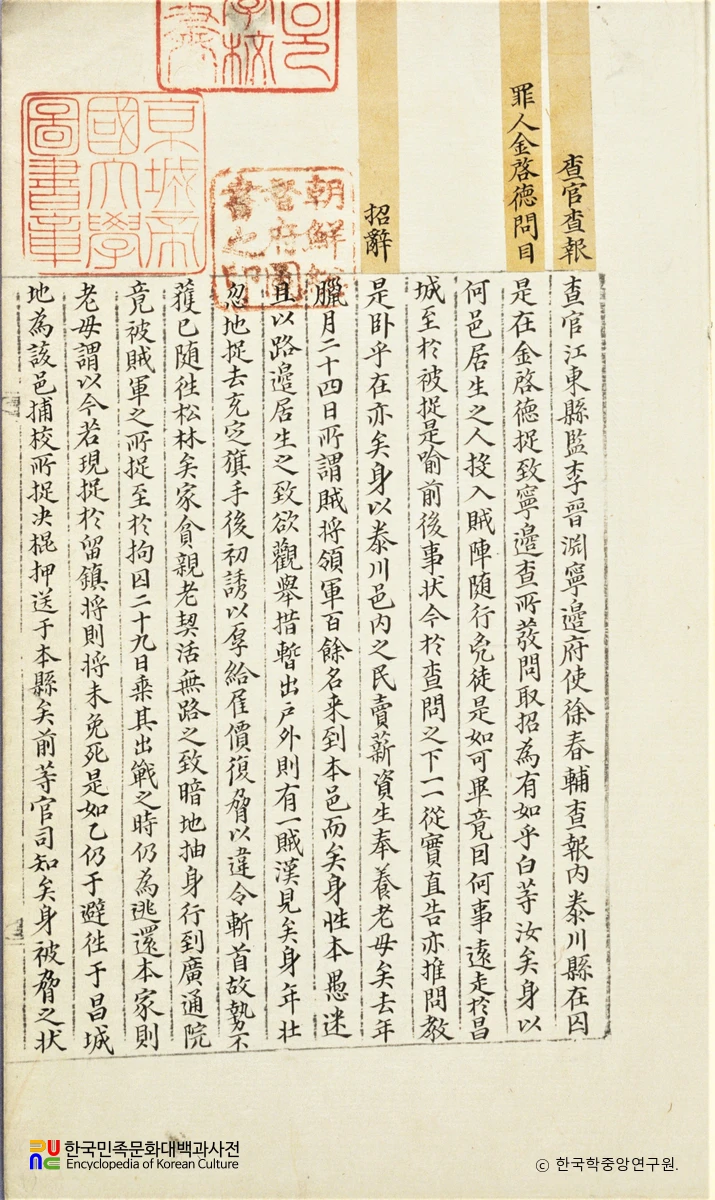 查官查報
查官江東縣監李晉淵寧邊府使徐春輔查報內泰川縣在囚
罪人金啓德問目
是在金啓德捉致寧邊查所發問取招為有如乎白等汝矣身以
何邑居生之人投入賊陣隨行兇徒是如可畢竟因何事遠走於昌
城至於被捉是喩前後事狀今於查問之下一從實直告亦推問教
招辭
是卧乎在亦矣身以泰川邑內之民賣薪資生奉養老母矣去年
臘月二十四日所謂賊將領軍百餘名来到本邑而矣身性本愚迷
且以路邊居生之致欲觀舉措暫出戶外則有一賊漢見矣身年壯
忽地捉去充定旗手後初誘以厚給雇價復脅以違令斬首故勢不
獲已隨徃松林矣家貧親老契活無路之致暗地抽身行到廣通院
竟被賊軍之所捉至於拘囚二十九日乗其出戰之時仍為逃還本家則
老母謂以今若現捉於留鎮將則將未免死是如乙仍于避徃于昌城
地為該邑捕校所捉决棍押送于本縣矣前等官司知矣身被脅之状
京城帝
國大學
圖書章
朝鮮總
督府圖
書之印
한국민족문화대백과사전
Encyclopedia of Korean Culture
ⓒ 한국학중앙연구원.